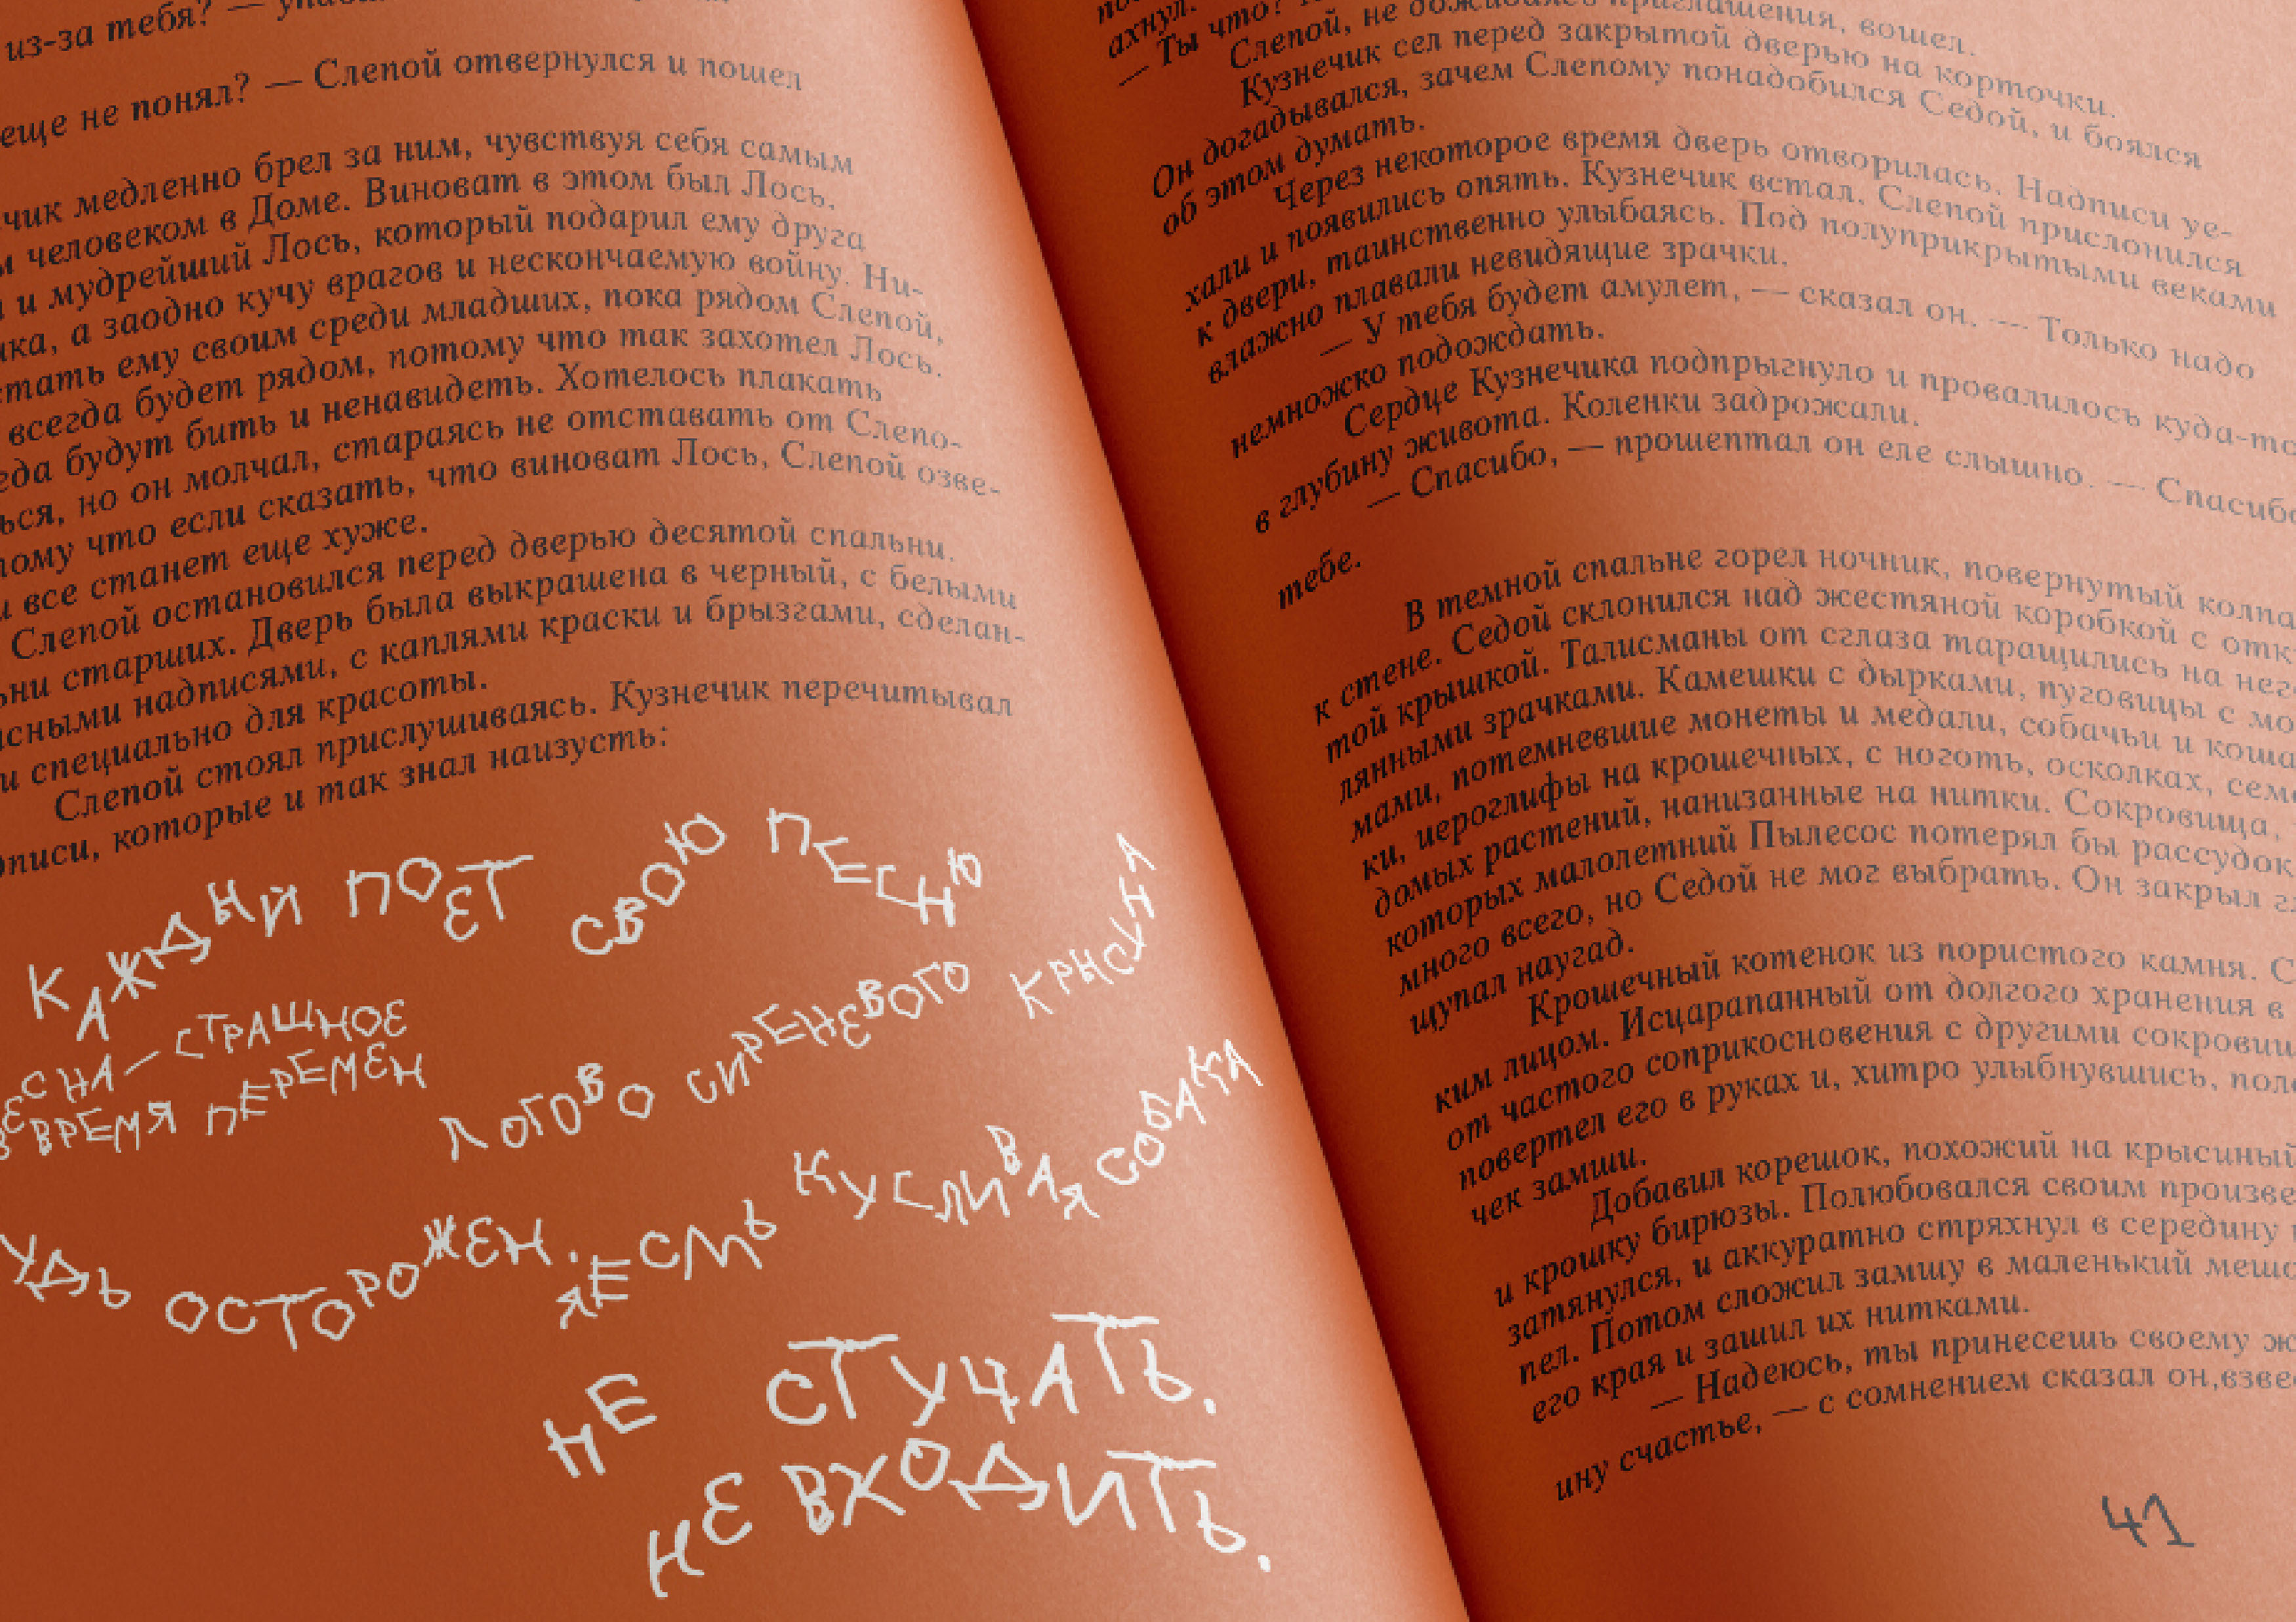 из-за тебя? —
еще не понял? — Слепой отвернулся и пошел
чик медленно брел за ним, чувствуя себя самым
человеком в Доме. Виноват в этом был Лось.
и мудрейший Лось, который подарил ему друга
а заодно кучу врагов и нескончаемую войну. Ни-
стать ему своим среди младших, пока рядом Слепой,
всегда будет рядом, потому что так захотел Лось.
гда будут бить и ненавидеть. Хотелось плакать
ься, но он молчал, стараясь не отставать от Слепо-
тому что если сказать, что виноват Лось, Слепой озве-
и все станет еще хуже.
Слепой остановился перед дверью десятой спальни.
ьни старших. Дверь была выкрашена в черный, с белыми
сными надписями, с каплями краски и брызгами, сделан-
и специально для красоты.
Слепой стоял прислушиваясь. Кузнечик перечитывал
дписи, которые и так знал наизусть:
КАЖДНЙ ПОЕТ СВОЮ ПЕСНЮ
ВЕСНА — СТРАШНОЕ
ВРЕМЯ ПЕРЕМЕН
ЛОГОВО СИРЕНЕВОГО КРЫСУНА
УДЬ ОСТОРОЖЕН. Я ЕСМЬ КУСЛИВАЯ СОБАКА
НЕ СТУЧАТЬ.
НЕ ВХОДИТЬ.
ахнул.
— Ты что?
Слепой, не дожидаясь приглашения, вошел.
Кузнечик сел перед закрытой дверью на корточки.
Он догадывался, зачем Слепому понадобился Седой, и боялся
об этом думать.
Через некоторое время дверь отворилась. Надписи уе-
хали и появились опять. Кузнечик встал. Слепой прислонился
к двери, таинственно улыбаясь. Под полуприкрытыми веками
влажно плавали невидящие зрачки.
— У тебя будет амулет, — сказал он. — Только надо
немножко подождать.
Сердце Кузнечика подпрыгнуло и провалилось куда-то
в глубину живота. Коленки задрожали.
— Спасибо, — прошептал он еле слышно. — Спасибо
тебе.
В темной спальне горел ночник, повернутый колпа
к стене. Седой склонился над жестяной коробкой с отк
той крышкой. Талисманы от сглаза таращились на него
лянными зрачками. Камешки с дырками, пуговицы с мо
мами, потемневшие монеты и медали, собачьи и коша
ки, иероглифы на крошечных, с ноготь, осколках, сем
домых растений, нанизанные на нитки. Сокровища,
которых малолетний Пылесос потерял бы рассудок
много всего, но Седой не мог выбрать. Он закрыл гл
щупал наугад.
Крошечный котенок из пористого камня. С
ким лицом. Исцарапанный от долгого хранения в
от частого соприкосновения с другими сокровищ
повертел его в руках и, хитро улыбнувшись, поло
чек замши.
Добавил корешок, похожий на крысиный
и крошку бирюзы. Полюбовался своим произве
затянулся, и аккуратно стряхнул в середину
пел. Потом сложил замшу в маленький мешо
его края и зашил их нитками.
— Надеюсь, ты принесешь своему ж
ину счастье, — с сомнением сказал он,взве
41